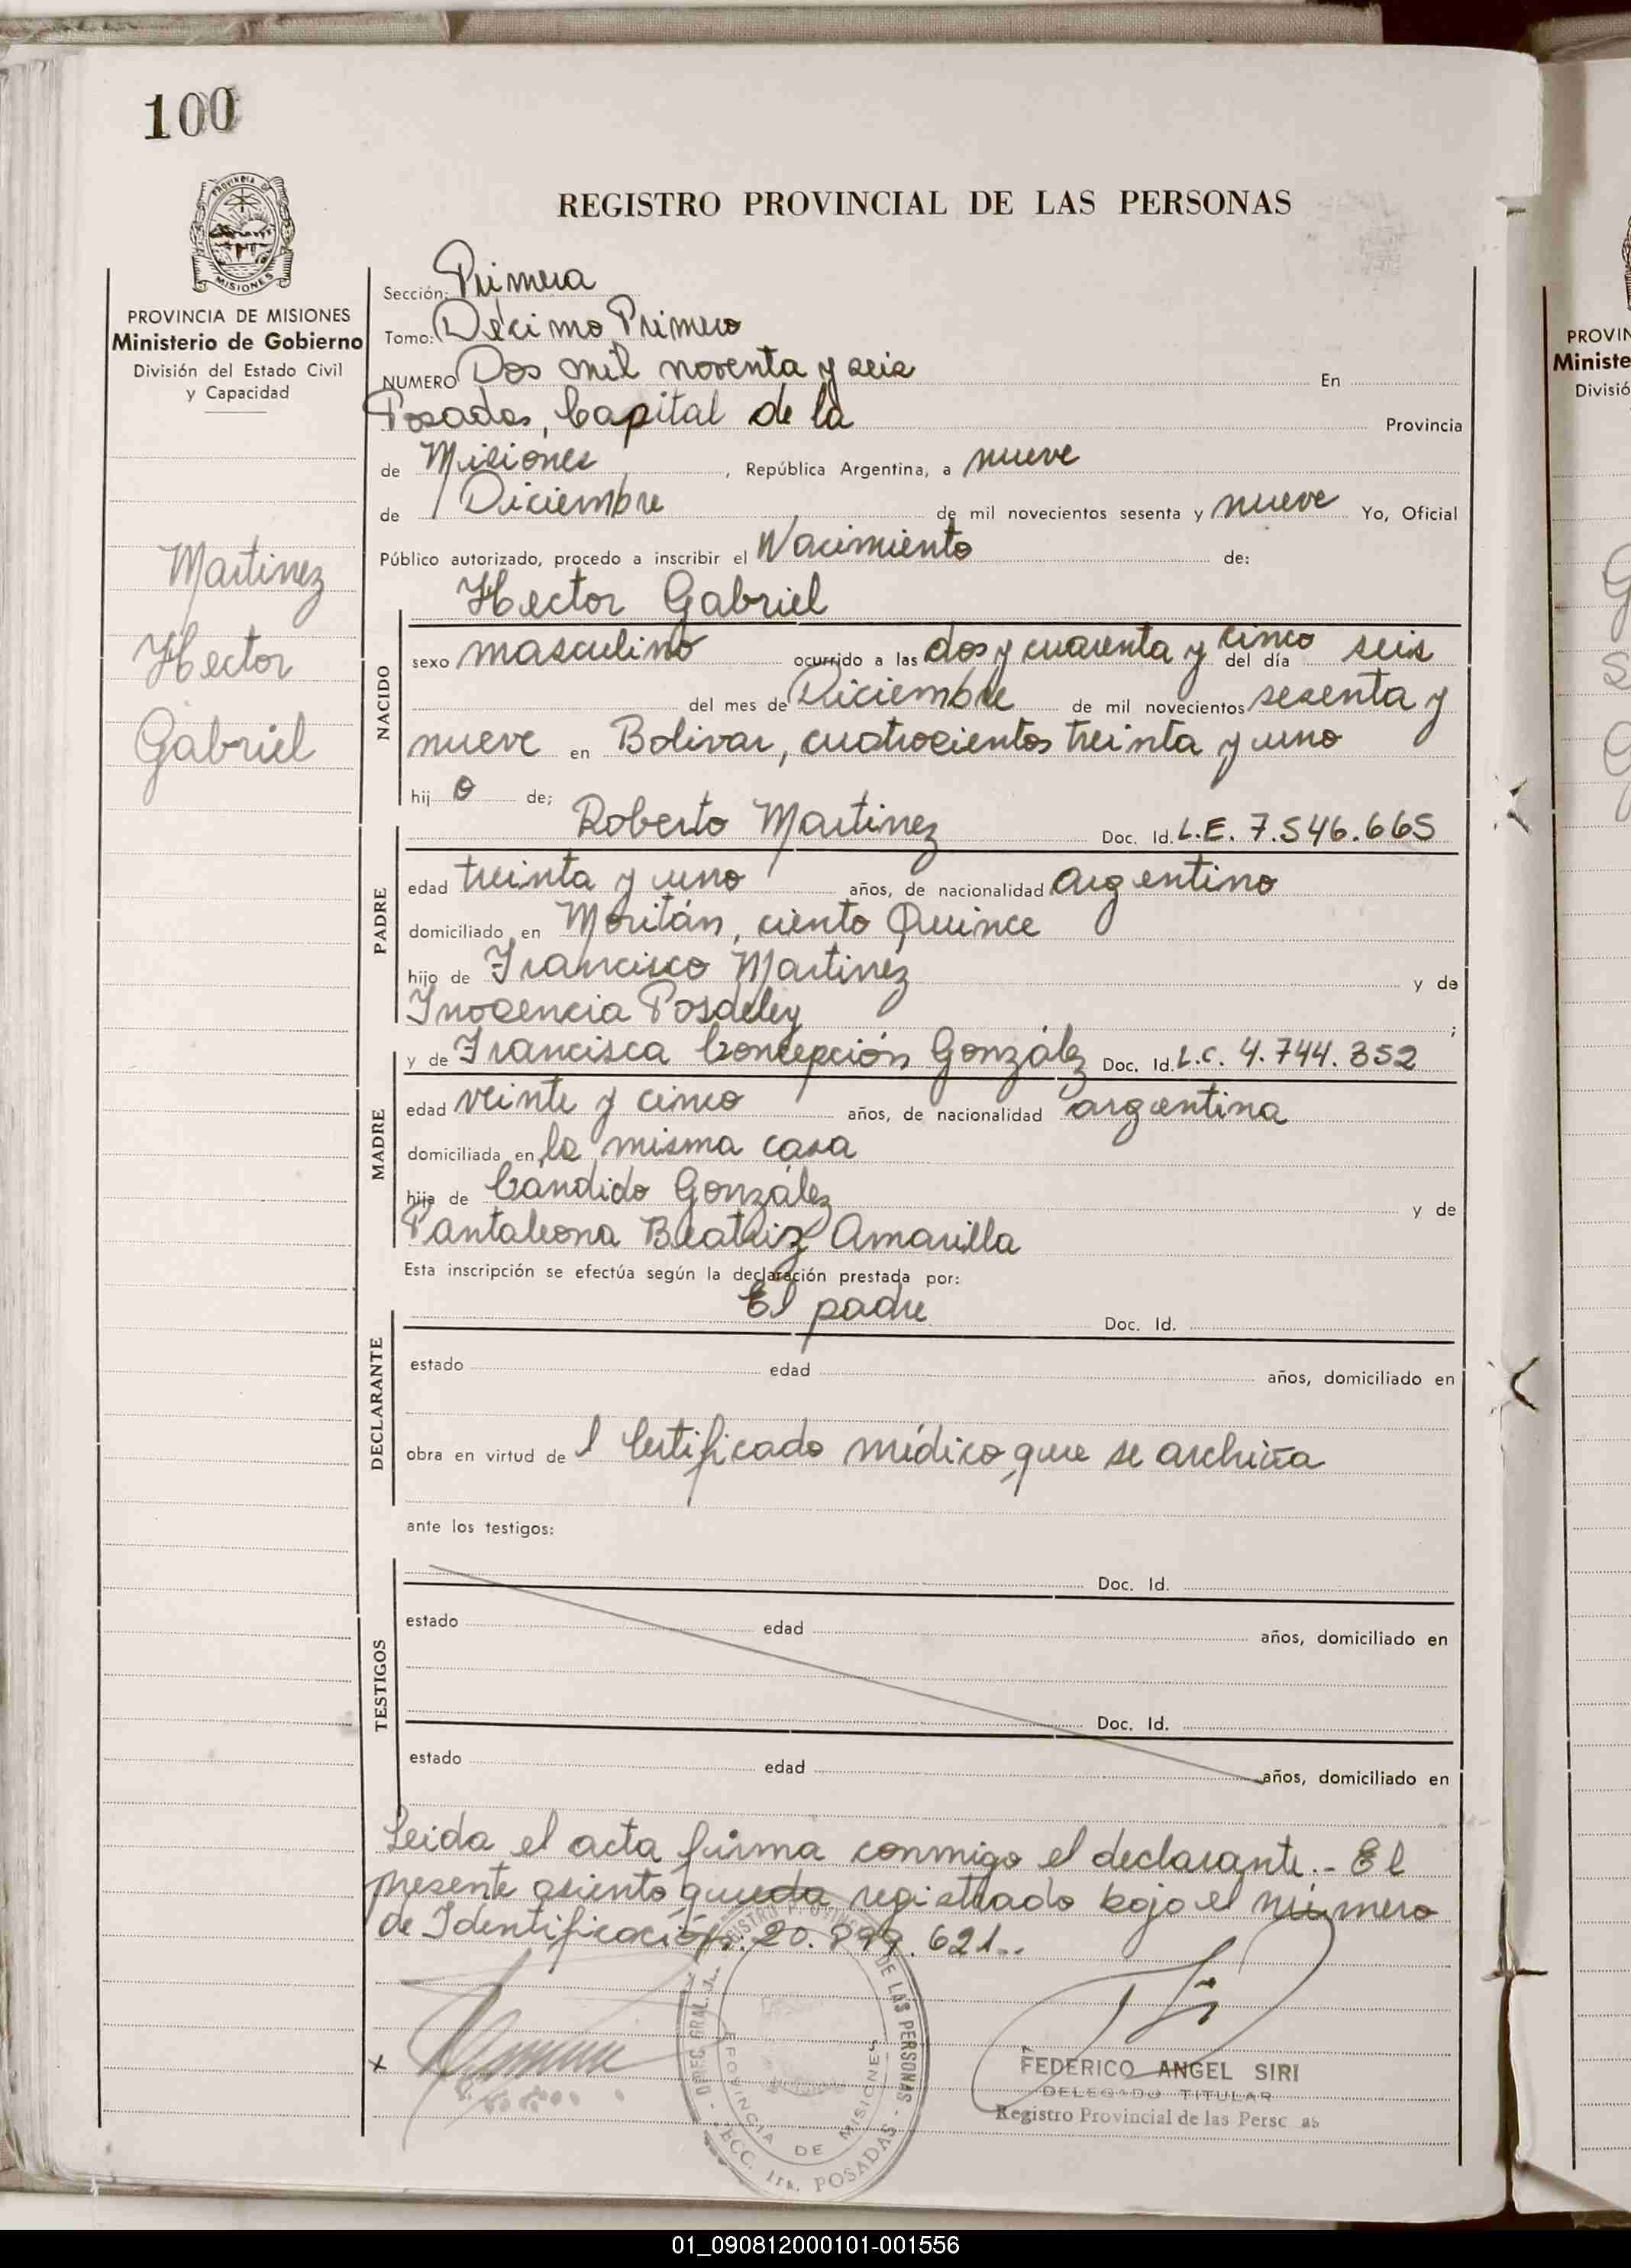 100
REGISTRO PROVINCIAL DE LAS PERSONAS
PROVINCIA DE MISIONES
MISIONES
PROVINCIA DE MISIONES
Ministerio de Gobierno
División del Estado Civil
y Capacidad
Martinez
Hector
Gabriel
Sección: Primera
Tomo: Décimo Primero
NUMERO Dos mil noventa y seis En
Posadas, Capital de la Provincia
de Misiones, República Argentina, a nueve
de Diciembre de mil novecientos sesenta y nueve Yo, Oficial
Público autorizado, procedo a inscribir el Nacimiento de:
Hector Gabriel
NACIDO
sexo masculino ocurrido a las dos y cuarenta y cinco del día seis
del mes de Diciembre de mil novecientos sesenta y
nueve en Bolivar, cuatrocientos treinta y uno
hij o de;
PADRE
Roberto Martinez Doc. Id. L.E. 7.546.665
edad treinta y uno años, de nacionalidad argentino
domiciliado en ciento Quince
hijo de Francisco Martinez y de
Inocencia ;
MADRE
y de Francisca Concepción González Doc. Id. L.C. 4.744.352
edad veinte y cinco años, de nacionalidad argentina
domiciliada en la misma casa
hija de Candido González y de
Pantaleona Beatriz Amarilla
Esta inscripción se efectúa según la declaración prestada por:
DECLARANTE
El padre Doc. Id.
estado edad años, domiciliado en
obra en virtud de l Certificado médico, que se archiva
ante los testigos:
TESTIGOS
Doc. Id.
estado edad años, domiciliado en
Doc. Id.
estado edad años, domiciliado en
Leida el acta firma conmigo el declarante.- El
presente asiento queda registrado bajo el número
de Identificación: 20.899.621..
x
FEDERICO ANGEL SIRI
DELEGADO TITULAR
Registro Provincial de las Persc as
DE LAS PERSONAS - SECC. 1ra. POSADAS
PROVINCIA DE MISIONES
PROVIN
Ministe
Divisió
01_090812000101-001556